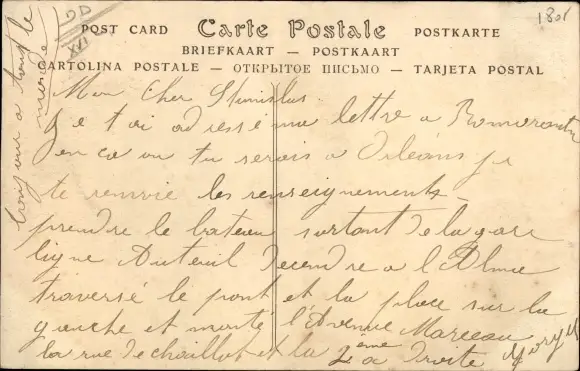 1801
2D
XVI
POST CARD Carte Postale POSTKARTE
BRIEFKAART — POSTKAART
CARTOLINA POSTALE — ОТКРЫТОЕ ПИСЬМО — TARJETA POSTAL
Mon Cher Stanislas
Je t'ai adressé une lettre a Romorantin
en ca ou tu serais a Orléans je
te renvoie les renseignements
prendre le bateau sortant de la gare
ligne Auteuil decendre a l'Alma
traversé le pont et la place sur la
gauche et monté l'Avenue Marceau
la rue de chaillot et la 2ème a Droite
bonjour a tout le
monde